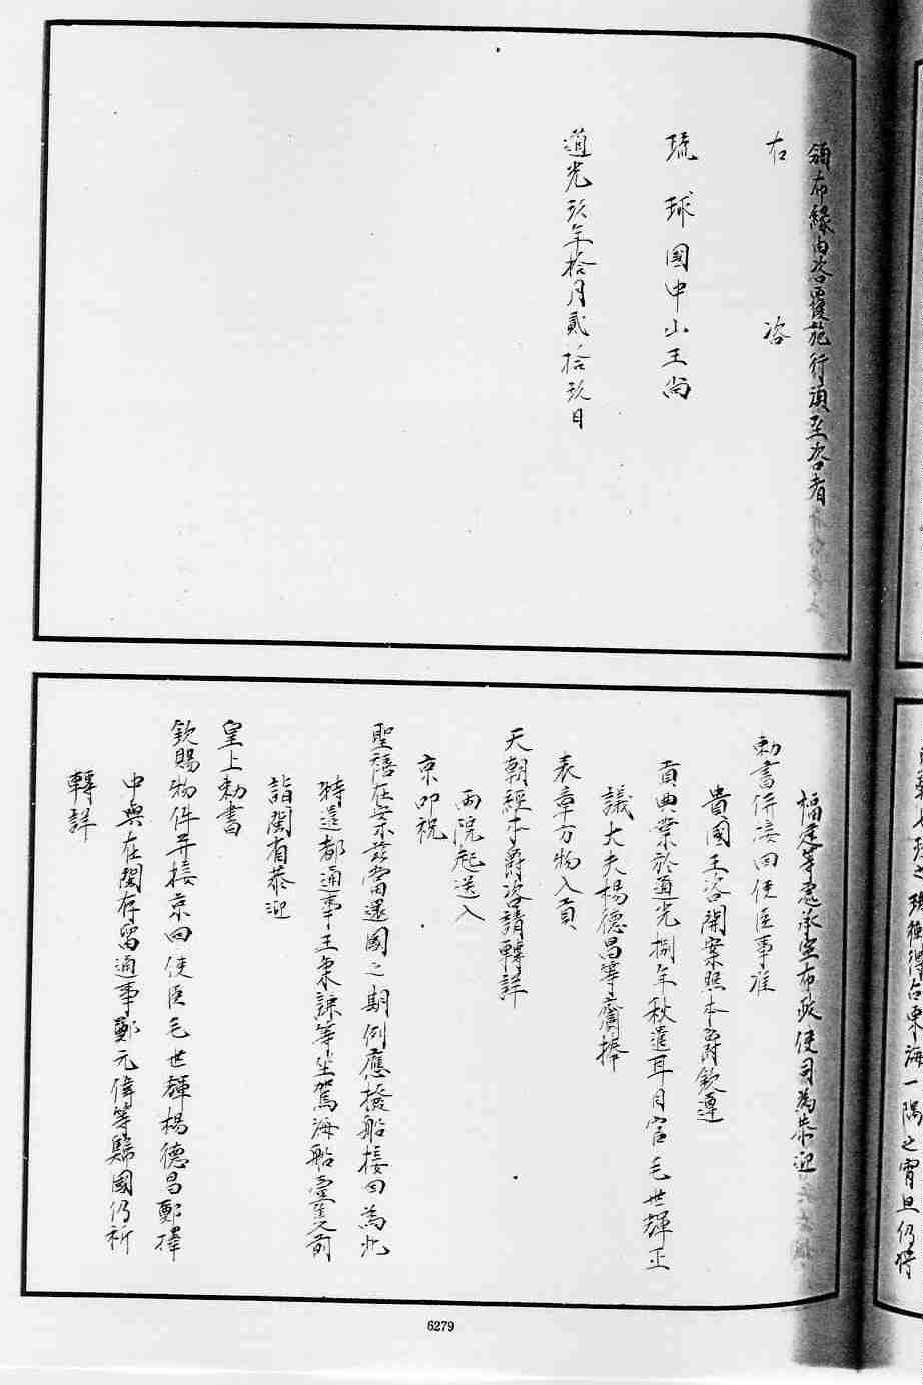 頒布緣由咨覆施行須至咨者
右 咨
琉球國中山王尚
道光玖年拾月貳拾玖日
福建等處承宣布政使司為恭迎
勅書併接回使臣事准
貴國王咨開案照本爵欽遵
貢典業於道光捌年秋遣耳目官毛世輝正
議大夫楊德昌等齎捧
表章方物入貢
天朝經本爵咨請轉詳
兩院起送入
京叩祝
聖禧在案茲當還國之期例應撥船接回為此
特遣都通事王秉謙等坐駕海船壹隻前
詣閩省恭迎
皇上勅書
欽賜物件并接京回使臣毛世輝楊德昌鄭擇
中與在閩存留通事鄭元偉等歸國仍祈
轉詳
6279